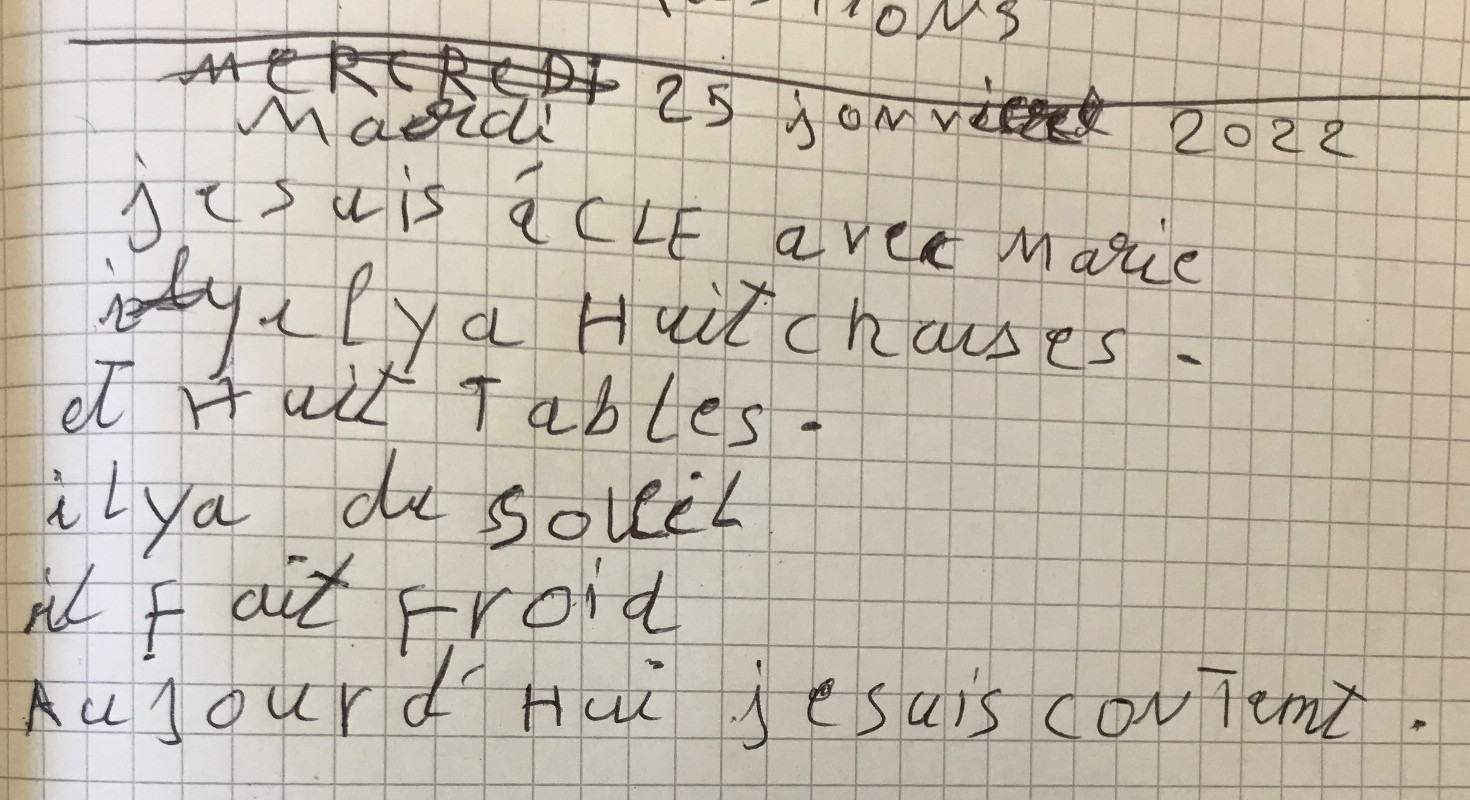 MERCREDI 25 janvier 2022
Mardi
je suis á CLE avec Marie
il y a Huit chaises.
et Huit Tables.
il y a du soleil
il Fait Froid
Aujourd'Hui je suis conTemt.